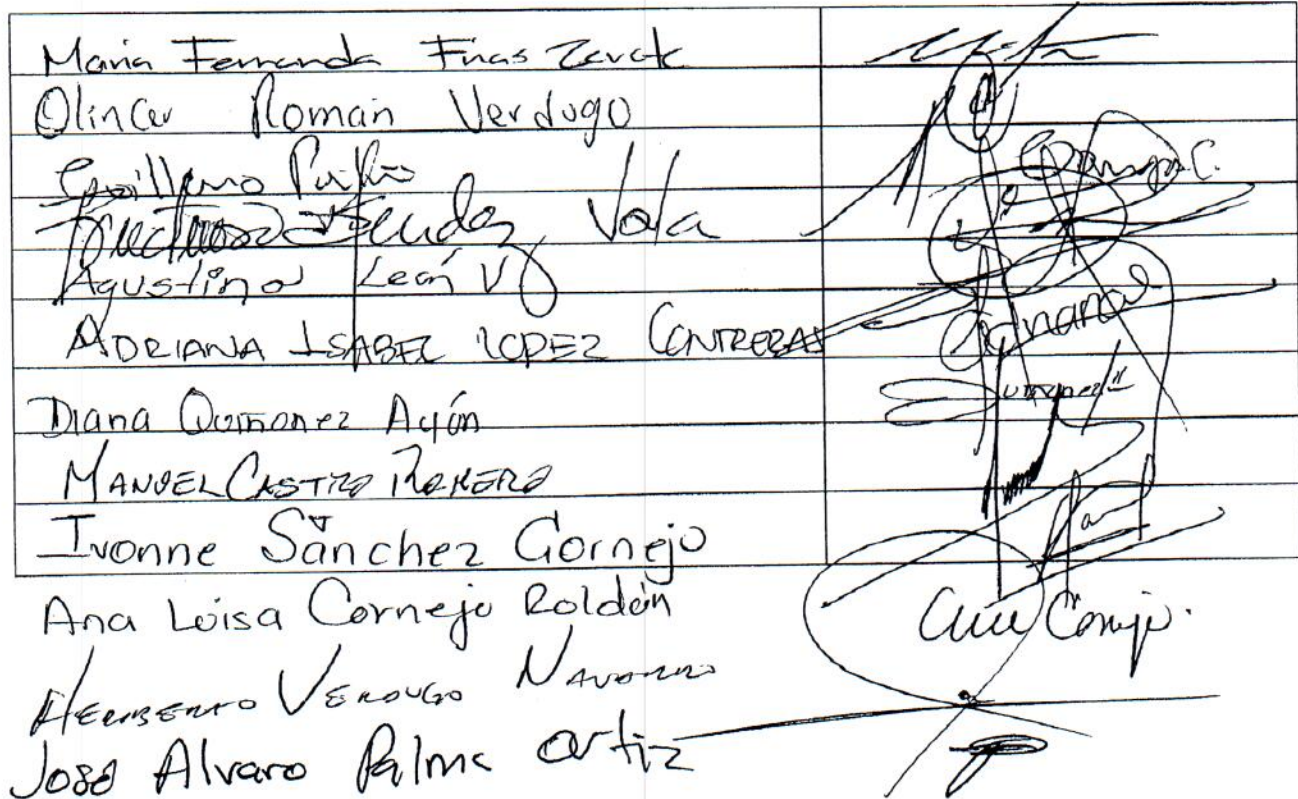 Maria Fernanda Frias Zarate
Olincer Roman Verdugo
Guillermo
Vala
Agustina Leon V
ADRIANA ISABEL LOPEZ CONTRERAS
Diana Quiñonez Ayón
MANUEL CASTRO ROMERO
Ivonne Sánchez Cornejo
Ana Luisa Cornejo Roldán
Ana Cornejo.
HERIBERTO VERDUGO NAVARRO
José Alvaro Palma Ortiz